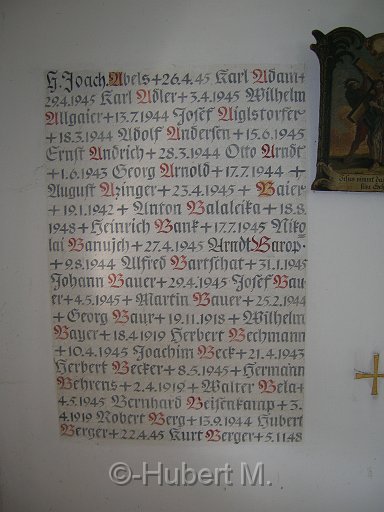 H. Joach. Abels+26.4.45 Karl Adam+
29.4.1945 Karl Adler+3.4.1945 Wilhelm
Allgaier+13.7.1944 Josef Aiglstorfer
+18.3.1944 Adolf Andersen+15.6.1945
Ernst Andrich+28.3.1944 Otto Arndt
+1.6.1943 Georg Arnold+17.7.1944 +
August Azinger+23.4.1945+ Baier
+19.1.1942+ Anton Balaleika+18.8.
1948+Heinrich Bank+17.7.1945 Niko
lai Banujch+27.4.1945 Arndt Barop·
+9.8.1944 Alfred Bartschat+31.1.1945
Johann Bauer+29.4.1945 Josef Bau
er+4.5.1945+Martin Bauer+25.2.1944
+Georg Baur+19.11.1918+Wilhelm
Bayer+18.4.1919 Herbert Bechmann
+10.4.1945 Joachim Beck+21.4.1943
Herbert Becker+8.5.1945+Hermann
Behrens+2.4.1919+Walter Bela+
4.5.1945 Bernhard Beisenkamp+3.
4.1919 Robert Berg+13.9.1944 Hubert
Berger+22.4.45 Kurt Berger+5.1148
©-Hubert M.